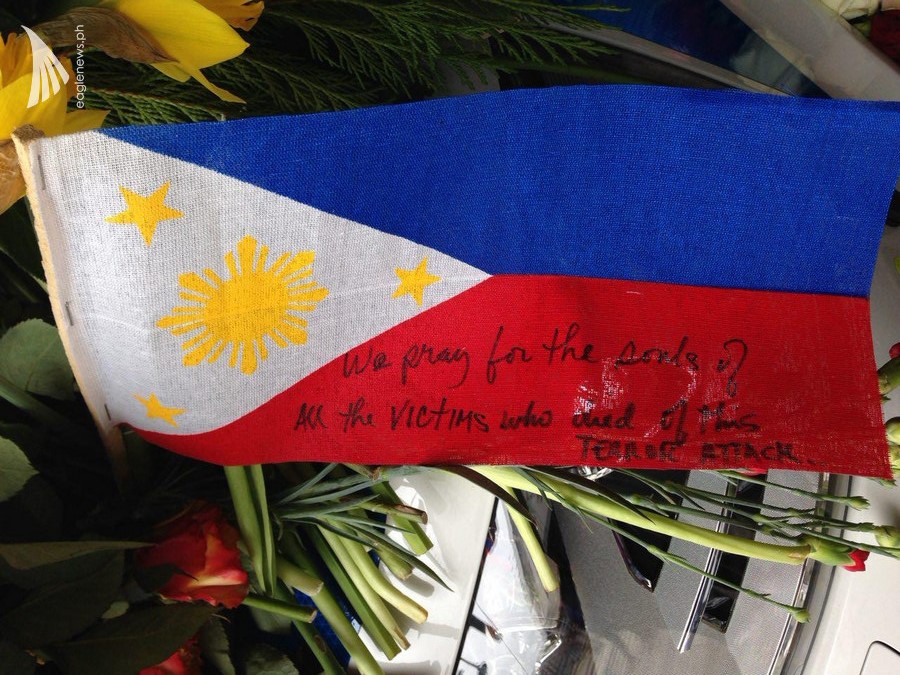 eaglenews.ph
We pray for the souls of
All the VICTIMS who died of this
TERROR ATTACK.